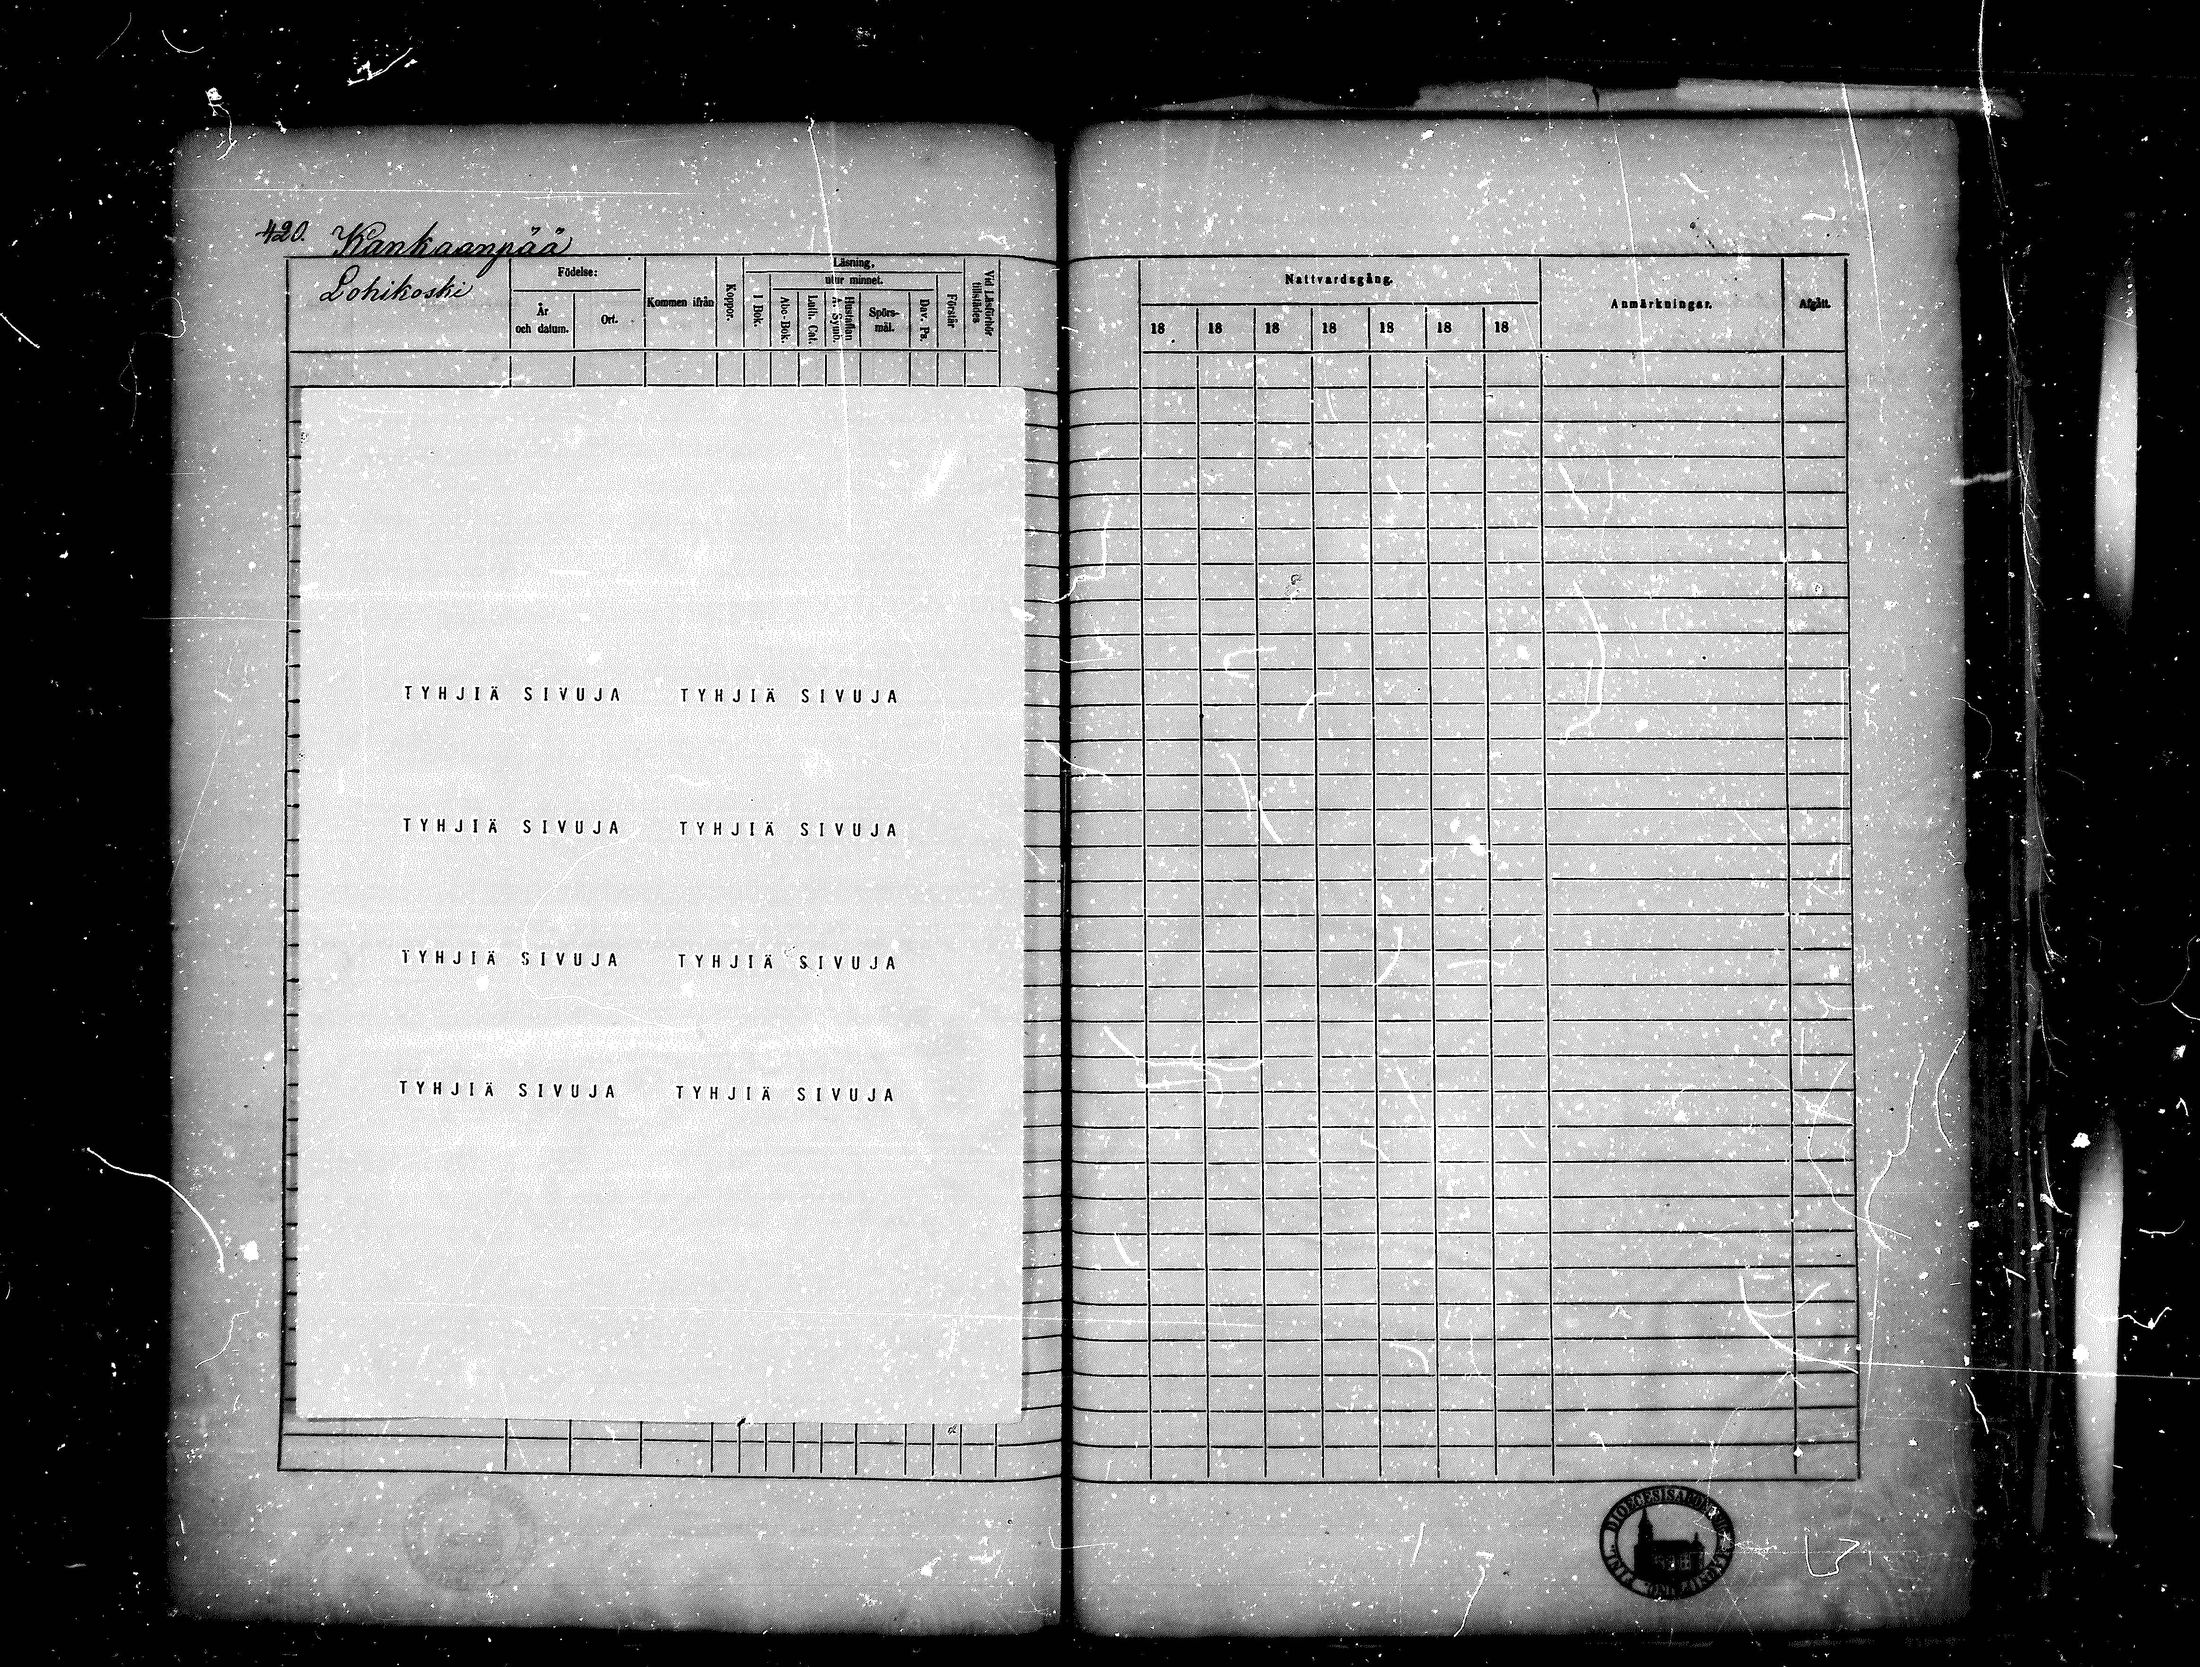 420. Kankaanpää
Lohikoski
Födelse:
År
och datum.
Ort.
Kommen ifrån
Koppor.
Läsning,
utur minnet.
I Bok.
Abc-Bok.
Luth. Cat.
Hustaflan
Symb.
Spörs-
mål.
Dav. Ps.
Förstår
Vid Läsförhör
tillstädes
Nattvardsgång.
18 18 18 18 18 18 18
Anmärkningar.
Afgått.
TYHJIÄ SIVUJA TYHJIÄ SIVUJA
TYHJIÄ SIVUJA TYHJIÄ SIVUJA
TYHJIÄ SIVUJA TYHJIÄ SIVUJA
TYHJIÄ SIVUJA TYHJIÄ SIVUJA